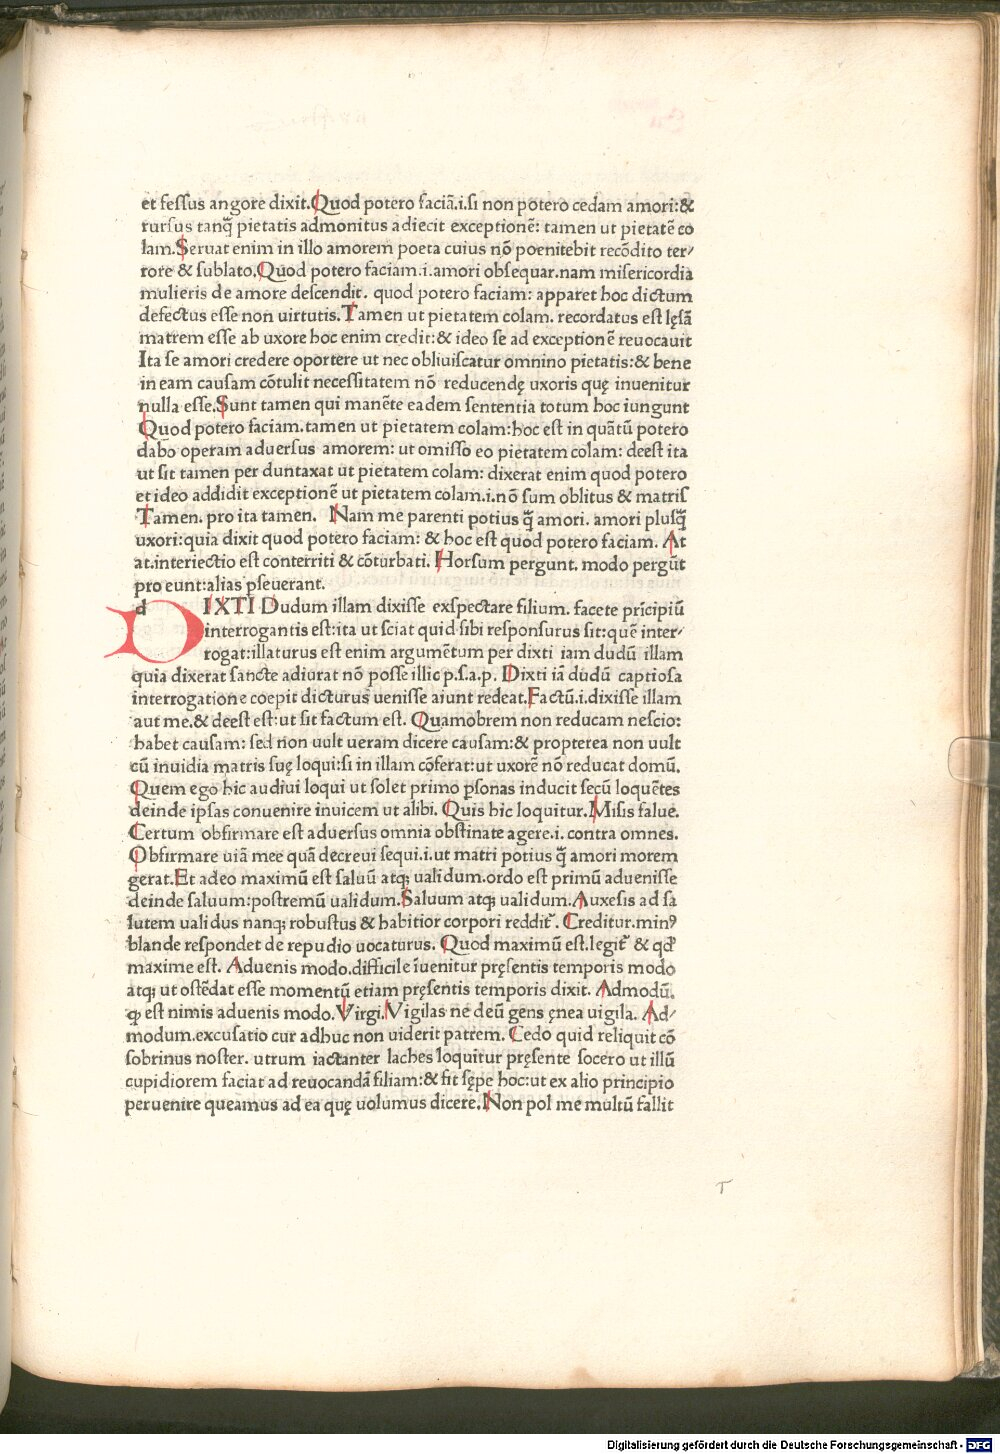 et fessus angore dixit.Quod potero faciā.i.si non potero cedam amori:&
rursus tanq̄ pietatis admonitus adiecit exceptionē: tamen ut pietatē co
lam.Seruat enim in illo amorem poeta cuius nō poenitebit recōdito ter⸗
rore & sublato.Quod potero faciam.i.amori obsequar.nam misericordia
mulieris de amore descendit. quod potero faciam: apparet hoc dictum
defectus esse non uirtutis.Tamen ut pietatem colam. recordatus est lęsā
matrem esse ab uxore hoc enim credit:& ideo se ad exceptionē reuocauit
Ita se amori credere oportere ut nec obliuiscatur omnino pietatis:& bene
in eam causam cōtulit necessitatem nō reducendę uxoris quę inuenitur
nulla esse.Sunt tamen qui manēte eadem sententia totum hoc iungunt
Quod potero faciam.tamen ut pietatem colam:hoc est in quātū potero
dabo operam aduersus amorem: ut omisso eo pietatem colam: deest ita
ut sit tamen per duntaxat ut pietatem colam: dixerat enim quod potero
et ideo addidit exceptionē ut pietatem colam.i.nō sum oblitus & matris
Tamen. pro ita tamen. Nam me parenti potius q̄ amori. amori plusq̄
uxori:quia dixit quod potero faciam: & hoc est quod potero faciam. At
at.interiectio est conterriti & cōturbati. Horsum pergunt. modo pergūt
pro eunt:alias pseuerant.
d DIXTI Dudum illam dixisse exspectare filium. facete prīcipiū
interrogantis est:ita ut sciat quid sibi responsurus sit:quē inter⸗
rogat:illaturus est enim argumētum per dixti iam dudū illam
quia dixerat sancte adiurat nō posse illic p.s.a.p. Dixti iā dudū captiosa
interrogatione coepit dicturus uenisse aiunt redeat.Factū.i.dixisse illam
aut me.& deest est:ut sit factum est. Quamobrem non reducam nescio:
habet causam: sed non uult ueram dicere causam:& propterea non uult
cū inuidia matris suę loqui:si in illam cōferat:ut uxorē nō reducat domū.
Quem ego hic audiui loqui ut solet primo psonas inducit secū loquētes
deinde ipsas conuenire inuicem ut alibi. Quis hic loquitur.Misis salue.
Certum obfirmare est aduersus omnia obstinate agere.i. contra omnes.
Obfirmare uiā mee quā decreui sequi.i.ut matri potius q̄ amori morem
gerat.Et adeo maximū est saluū atq; ualidum.ordo est primū aduenisse
deinde saluum:postremū ualidum.Saluum atq; ualidum.Auxesis ad sa
lutem ualidus nanq; robustus & habitior corpori reddit᷑. Creditur.minꝰ
blande respondet de repudio uocaturus. Quod maximū est.legit᷑ & qd̄
maxime est. Aduenis modo.difficile iuenitur pręsentis temporis modo
atq; ut ostēdat esse momentū etiam pręsentis temporis dixit. Admodū.
ꝙ est nimis aduenis modo.Virgi.Vigilas ne deū gens ęnea uigila. Ad⸗
modum.excusatio cur adhuc non uiderit patrem. Cedo quid reliquit cō
sobrinus noster. utrum iactanter laches loquitur pręsente socero ut illū
cupidiorem faciat ad reuocandā filiam:& fit sępe hoc:ut ex alio principio
peruenire queamus ad ea quę uolumus dicere.Non pol me multū fallit
Digitalisierung gefördert durch die Deutsche Forschungsgemeinschaft - DFG